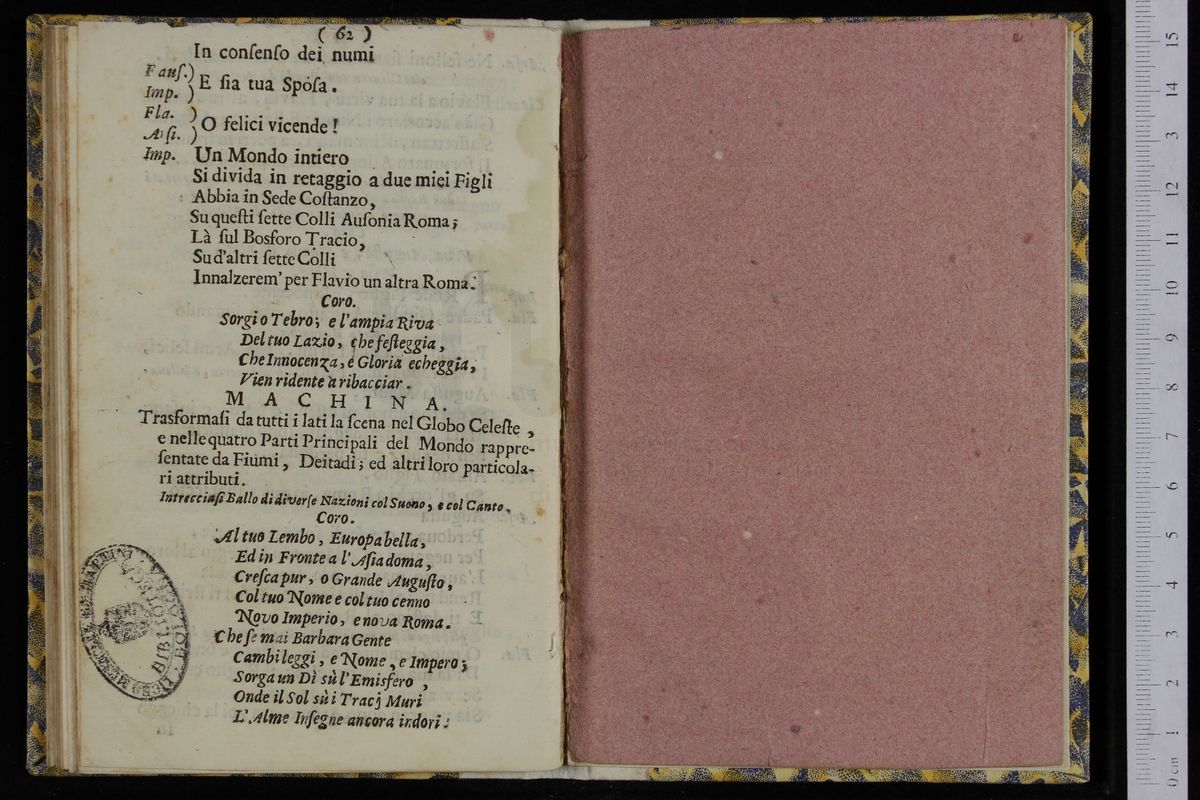 ( 62 )
In conſenſo dei numi
Fauſ. )
Imp. ) E ſia tua Spoſa.
Fla. )
Arſi. ) O felici vicende!
Imp. Un Mondo intiero
Si divida in retaggio a due miei Figli
Abbia in Sede Coſtanzo,
Su queſti ſette Colli Auſonia Roma;
Là ſul Bosforo Tracio,
Su d'altri ſette Colli
Innalzerem' per Flavio un altra Roma.
Coro.
Sorgi o Tebro; e l'ampia Riva
Del tuo Lazio, che feſteggia,
Che Innocenza, e Gloria echeggia,
Vien ridente a ribacciar.
MACHINA.
Trasformaſi da tutti i lati la ſcena nel Globo Celeſte,
e nelle quatro Parti Principali del Mondo rappre-
ſentate da Fiumi, Deitadi; ed altri loro particola-
ri attributi.
Intrecciaſi Ballo di diverſe Nazioni col Suono, e col Canto.
Coro.
Al tuo Lembo, Europa bella,
Ed in Fronte a l'Aſia doma,
Creſca pur, o Grande Auguſto,
Col tuo Nome e col tuo cenno
Novo Imperio, e nova Roma.
Che ſe mai Barbara Gente
Cambi leggi, e Nome, e Impero;
Sorga un Dì sù l'Emisfero,
Onde il Sol sù i Tracj Muri
L'Alme Inſegne ancora indori:
0 cm 1 2 3 4 5 6 7 8 9 10 11 12 13 14 15